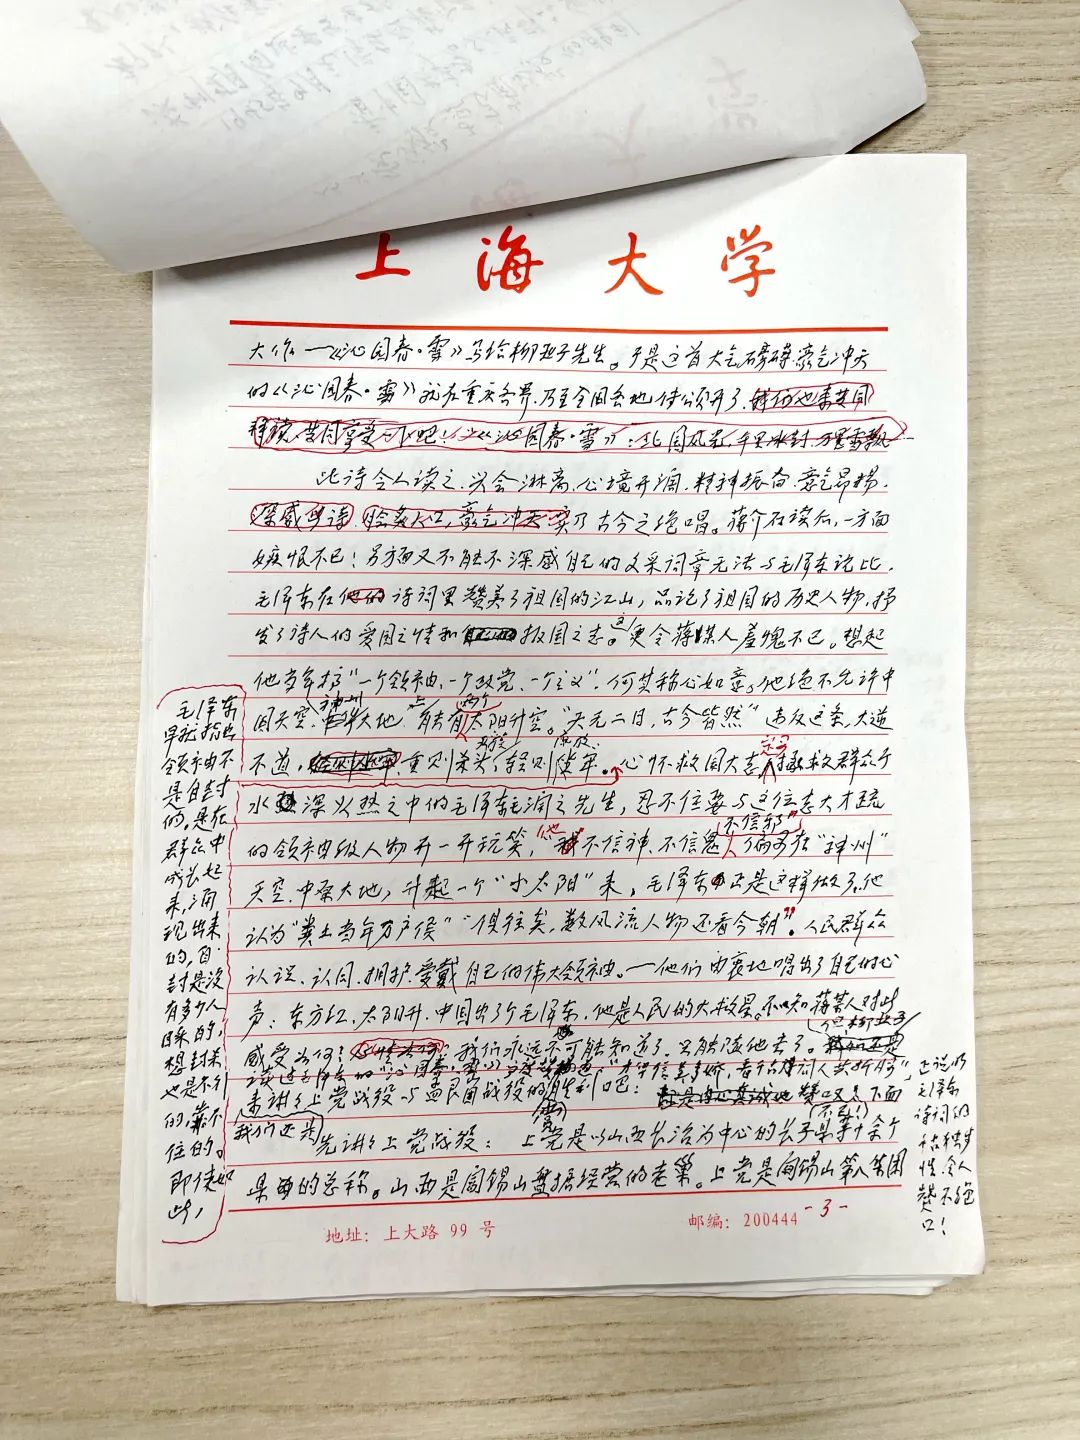 上海大学
大作——《沁园春·雪》写给柳亚子先生。于是这首大气磅礴豪气冲天
的《沁园春·雪》就在重庆各界、乃至全国各地传颂开了。我们也来共同
释读,共同享受一下吧!《沁园春·雪》:北国风光,千里冰封,万里雪飘……
此诗令人读之,兴会淋离,心境开润,精神振奋,意气昂扬,
深感此诗脍炙人口,豪气冲天 实乃古今之绝唱。蒋介石读后,一方面
嫉恨不已!另方面又不能不深感自己的文采词章无法与毛泽东论比,
毛泽东在他的诗词里赞美了祖国的江山,品论了祖国的历史人物,抒
发了诗人的爱国之情和报国之志。这更令蒋某人羞愧不已。想起
他当年搞“一个领袖、一个政党、一个主义”,何其称心如意。他绝不允许中
国天空、神州大地有两个太阳升空。“天无二日,古今皆然”违反这条,大逆
不道,重则杀头,轻则坐牢。心怀救国大志拯救群众于
水深火热之中的毛泽东毛润之先生,忍不住要与这位志大才疏
的领袖级人物开一开玩笑,他不信神、不信鬼、不信邪”偏要在“神州”
天空、中华大地,升起一个“小太阳”来,毛泽东正是这样做了。他
认为“粪土当年万户侯”“俱往矣,数风流人物还看今朝”。人民群众
认识、认同、拥护、爱戴自己的伟大领袖。——他们由衷地唱出了自己的心
声:东方红,太阳升,中国出了个毛泽东,他是人民的大救星。不知蒋某人对此
感受为何?我们永远不可能知道了,只能随他去了。但柳亚子
读过毛泽东的“沁园春·雪”
来讲讲上党战役与孟良崮战役的胜利吧:下面
我们还是先讲讲上党战役:上党是以山西长治为中心的长子县等十余个
县的总称。山西是阎锡山盘据经营的老巢。上党是阎锡山第八集团
毛泽东
早就指出
领袖不
是自封
的,是在
群众中
成长起
来,涌
现出来
的,自
封是没
有多少人
睬的,
想封来
也是不行
的,靠不
住的。
即使如
此,
正说明
毛泽东
诗词的
千古独步
性,令人
赞不绝
口!
-3-
地址:上大路 99 号
邮编:200444